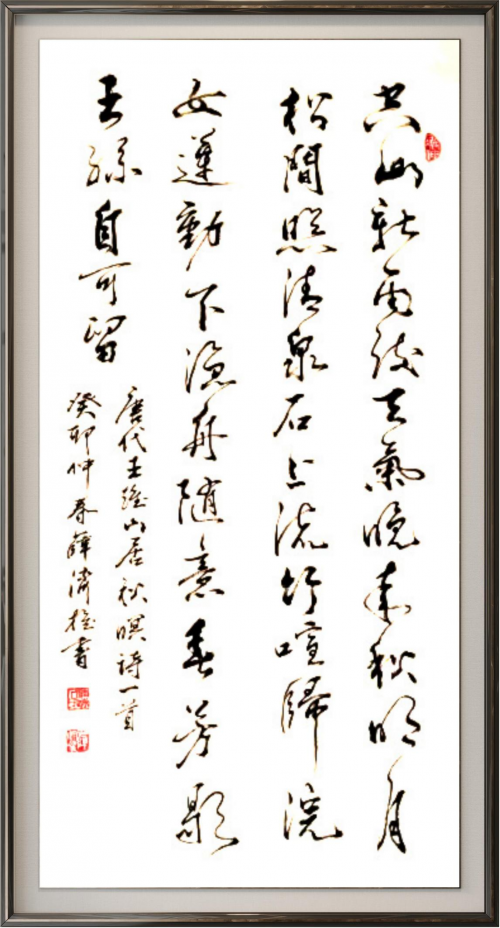 空山新雨後天氣晚來秋明月
松間照清泉石上流竹喧歸浣
女蓮動下漁舟随意春芳歇
王孫自可留
唐代王維山居秋暝詩一首
癸卯仲春薛書